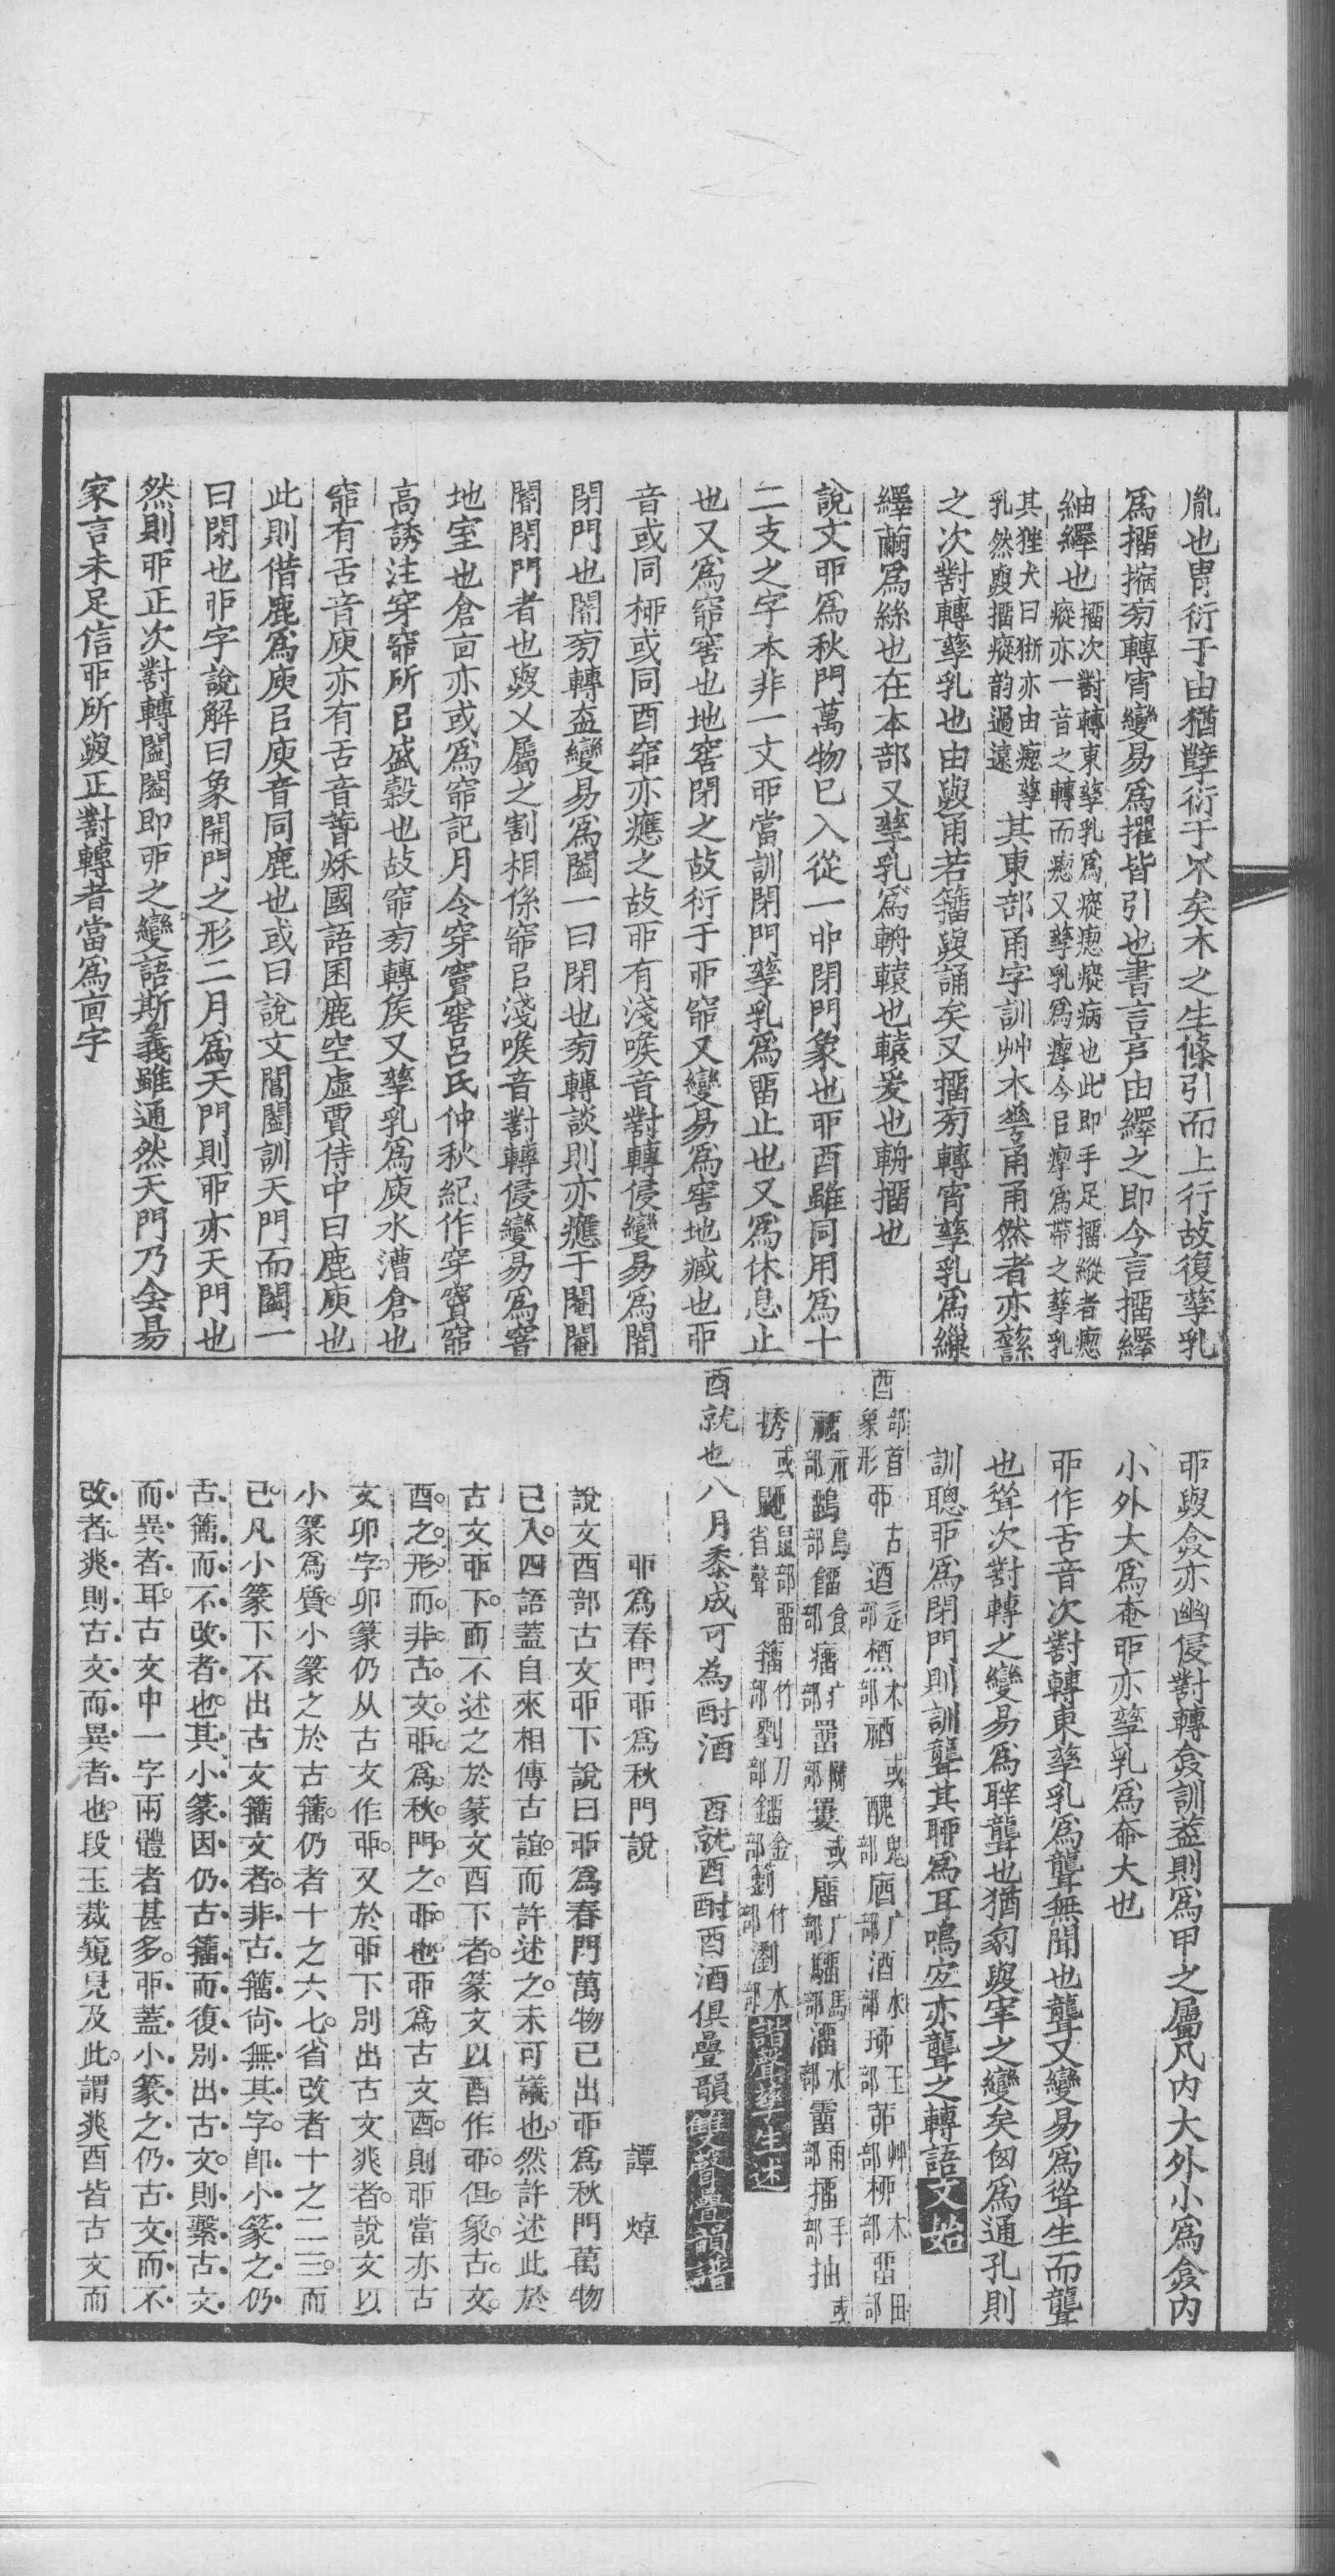 胤也胄衍于由猶孽衍于不矣木之生條引而上行故復孳乳
爲擂擂㫄轉宵變易爲擢皆引也書言言由繹之即今言擂繹
紬繹也擂次對轉東孳乳爲瘲瘛瘲病也此即手足擂縱者瘛
瘲亦一音之轉而瘛又孳乳爲瘈今㠯瘈爲帶之孳乳
其狴犬曰狾亦由瘛孳
乳然與擂瘲韵過遠
其東部甬字訓艸木㝵甬甬然者亦繇
之次對轉孳乳也由與甬若籀與誦矣又擂㫄轉宵孳乳爲繅
繹繭爲絲也在本部又孳乳爲輈轅也轅爰也輈擂也
說文丣爲秋門萬物已入從一丣閉門象也丣酉雖同用爲十
二支之字本非一文丣當訓閉門孳乳爲畱止也又爲休息止
也又爲窌窖也地窖閉之故衍于丣窌又變易爲窖地臧也丣
音或同桺或同酉窌亦應之故丣有淺喉音對轉侵變易爲闇
閉門也闇㫄轉盍變易爲闔一曰閉也㫄轉談則亦應于閹閹
闇閉門者也與乂屬之割相係窌㠯淺喉音對轉侵變易爲窨
地室也倉㐭亦或爲窌記月令穿竇窖呂氏仲秋紀作穿竇窌
高誘注穿窌所㠯盛穀也故窌㫄轉矦又孳乳爲庾水漕倉也
窌有舌音庾亦有舌音嘗㚼國語囷鹿空虛賈侍中曰鹿庾也
此則借鹿爲庾㠯庾音同鹿也或曰說文閶闔訓天門而闔一
曰閉也丣字說解曰象開門之形二月爲天門則丣亦天門也
然則丣正次對轉闔闔即丣之變語斯義雖通然天門乃侌昜
家言未足信丣所與正對轉者當爲㐭字
丣與弇亦幽侵對轉弇訓蓋則爲甲之屬凡內大外小爲弇內
小外大爲奄丣亦孳乳爲奅大也
丣作舌音次對轉東孳乳爲聾無聞也聾又變易爲聳生而聾
也聳次對轉之變易爲聹聾也猶豹與宰之變矣囪爲通孔則
訓聰丣爲閉門則訓聾其聊爲耳鳴定亦聾之轉語文始
酉部首象形丣古逎辵部槱木部禉或醜鬼部庮广部酒水部珋玉部茆艸部桺木部畱田部
䄂示部鶹鳥部餾食部瘤疒部罶网部𦌁或廇广部騮馬部溜水部霤雨部擂手部抽或
㨨或鼬鼠部畱省聲籀竹部劉刀部鎦金部籀竹部瀏水部諧聲孳生述
酉就也八月黍成可為酎酒　酉就酉酎酉酒俱疊韻雙聲疊韻譜
丣爲春門丣爲秋門說　譚焯
說文酉部古文丣下說曰丣爲春門萬物已出丣爲秋門萬物
已入四語蓋自來相傳古誼而許述之未可議也然許述此於
古文丣下而不述之於篆文酉下者篆文以酉作丣但象古文
酉之形而非古文丣爲秋門之丣也丣爲古文酉則丣當亦古
文卯字卯篆仍从古文作丣又於丣下別出古文兆者說文以
小篆爲質小篆之於古籀仍者十之六七省改者十之二三而
已凡小篆下不出古文籀文者非古籀尙無其字卽小篆之仍
古籀而不改者也其小篆因仍古籀而復別出古文則繫古文
而異者耳古文中一字兩體者甚多丣蓋小篆之仍古文而不
改者兆則古文而異者也段玉裁窺見及此謂兆酉皆古文而